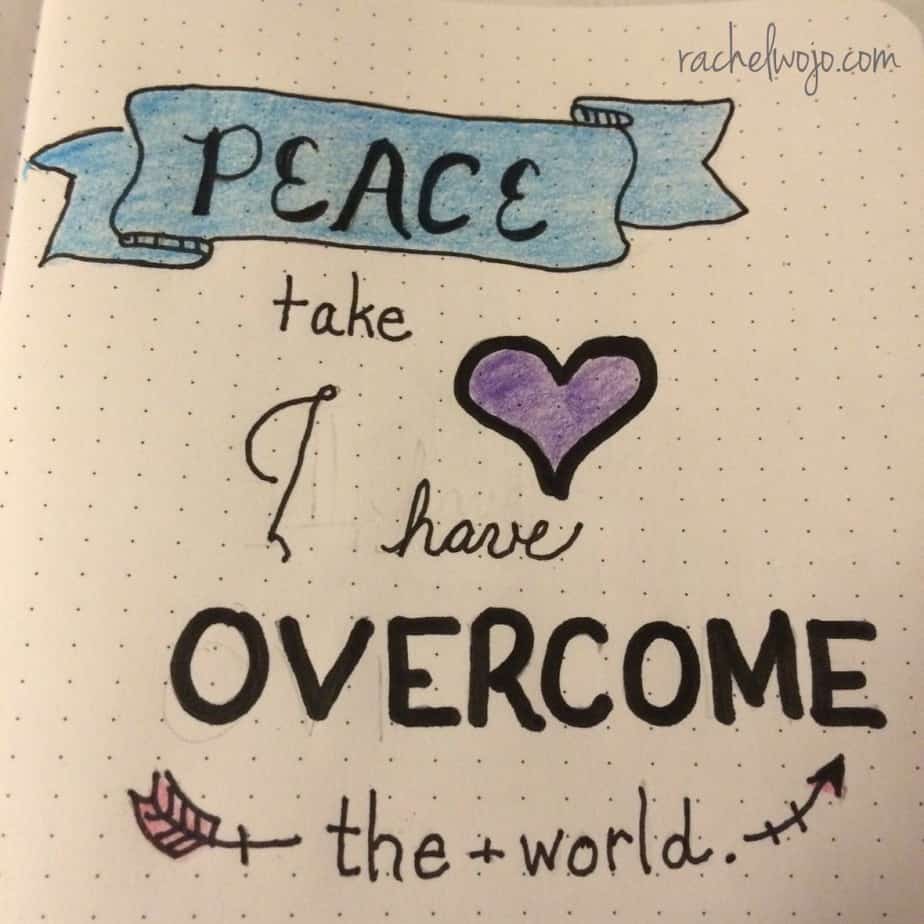 rachelwojo.com
PEACE
take
I have
OVERCOME
the + world.